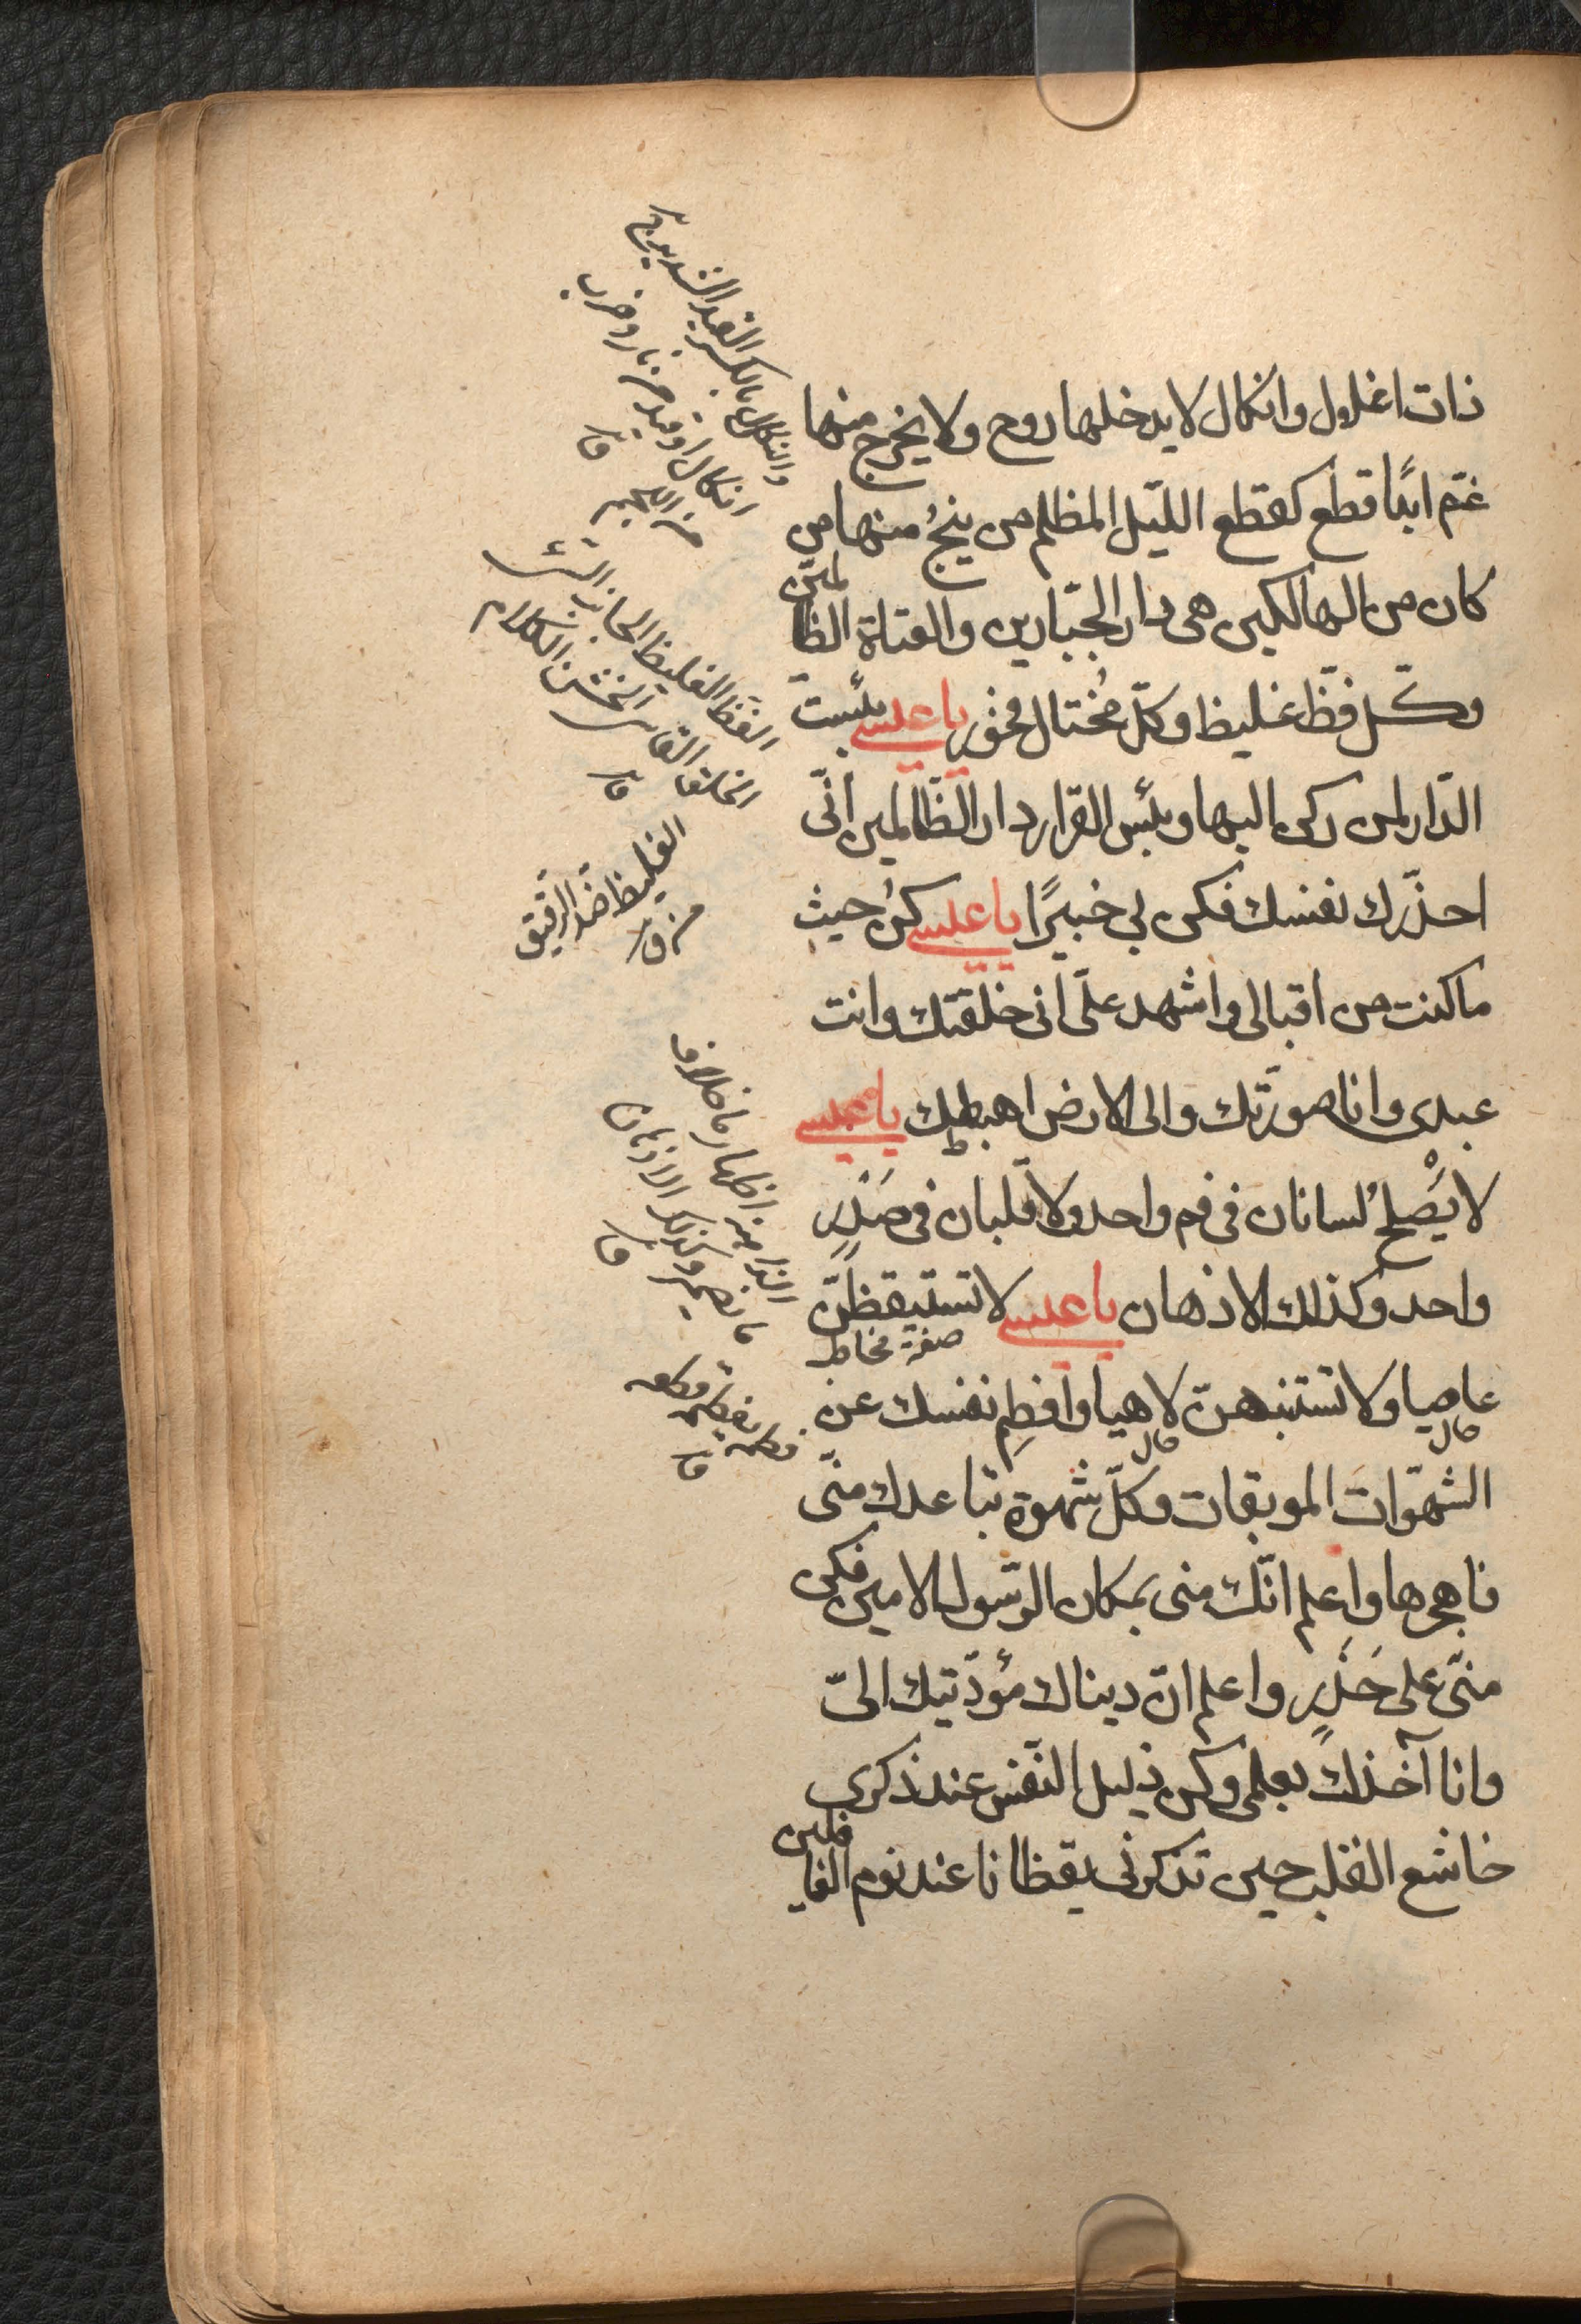 ذات اغلال وانكال لا يدخلها روح ولا يخرج منها
غم ابدًا قطع كقطع الليل المظلم من ينجُ منها من
كان من الهالكين هى دار الجبّارين والعتاة الظالمين
وكل فظّ غليظ وكلّ مُختال فخور يا عيسى بئست
الدّار لمن ركن اليها وبئس القرار دار الظّالمين انّى
احذّرك نفسك فكن بى خبيرًا يا عيسى كن حيث
ما كنت من اقبالى واشهد علىّ انى خلقتك وانت
عبدى وانا صوّرتك والى الارض اهبطتك يا عيسى
لا يَصْلحُ لسانان فى فم واحد ولا قلبان فى صَدْرٍ
واحد وكذلك الاذهان يا عيسى لا تستيقظنّ
صفة مخاطب
عاصيا ولا تستنبهنّ لاهيا وافطِم نفسك عن
حال حال
الشهوات الموبقات وكلّ شهوة تباعدك منّى
فاهجرها واعلم انّك منى بمكان الرّسول الامين فكن
منّى على حَذَرٍ واعلم انّ دنياك مؤدّيتك الىّ
وانا آخذك بعلمى وكن ذليل النّفس عند ذكرى
خاشع القلب حين تذكرنى يقظانا عند نوم الغافلين
والنكل بالكسر القيد الشديد ج
انكال او قيد من نار وضرب
من اللجم ق
الفظّ الغليظ الجانب السّيّئ
الخلق القاسى الخشن الكلام
ق
الغليظ ضدّ الرقيق
من ق
اظهار ما خلاف
ما يضمر وكذلك الاذهان
ق
فطمه يفطمه قطعه
ق